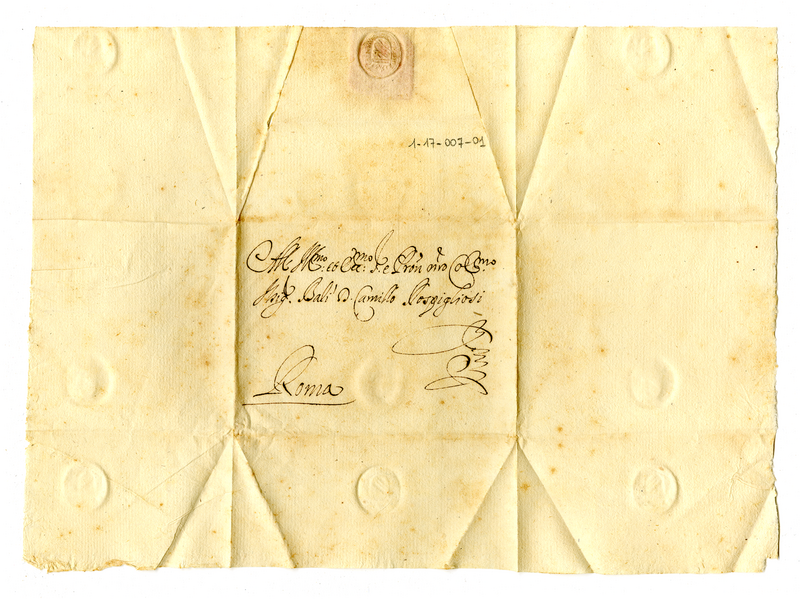 1-17-007-01
All Ill.mo et Ecc.mo S.e e Pron mio Col.mo
Il Sig. Bali D. Camillo Rospigliosi
Roma